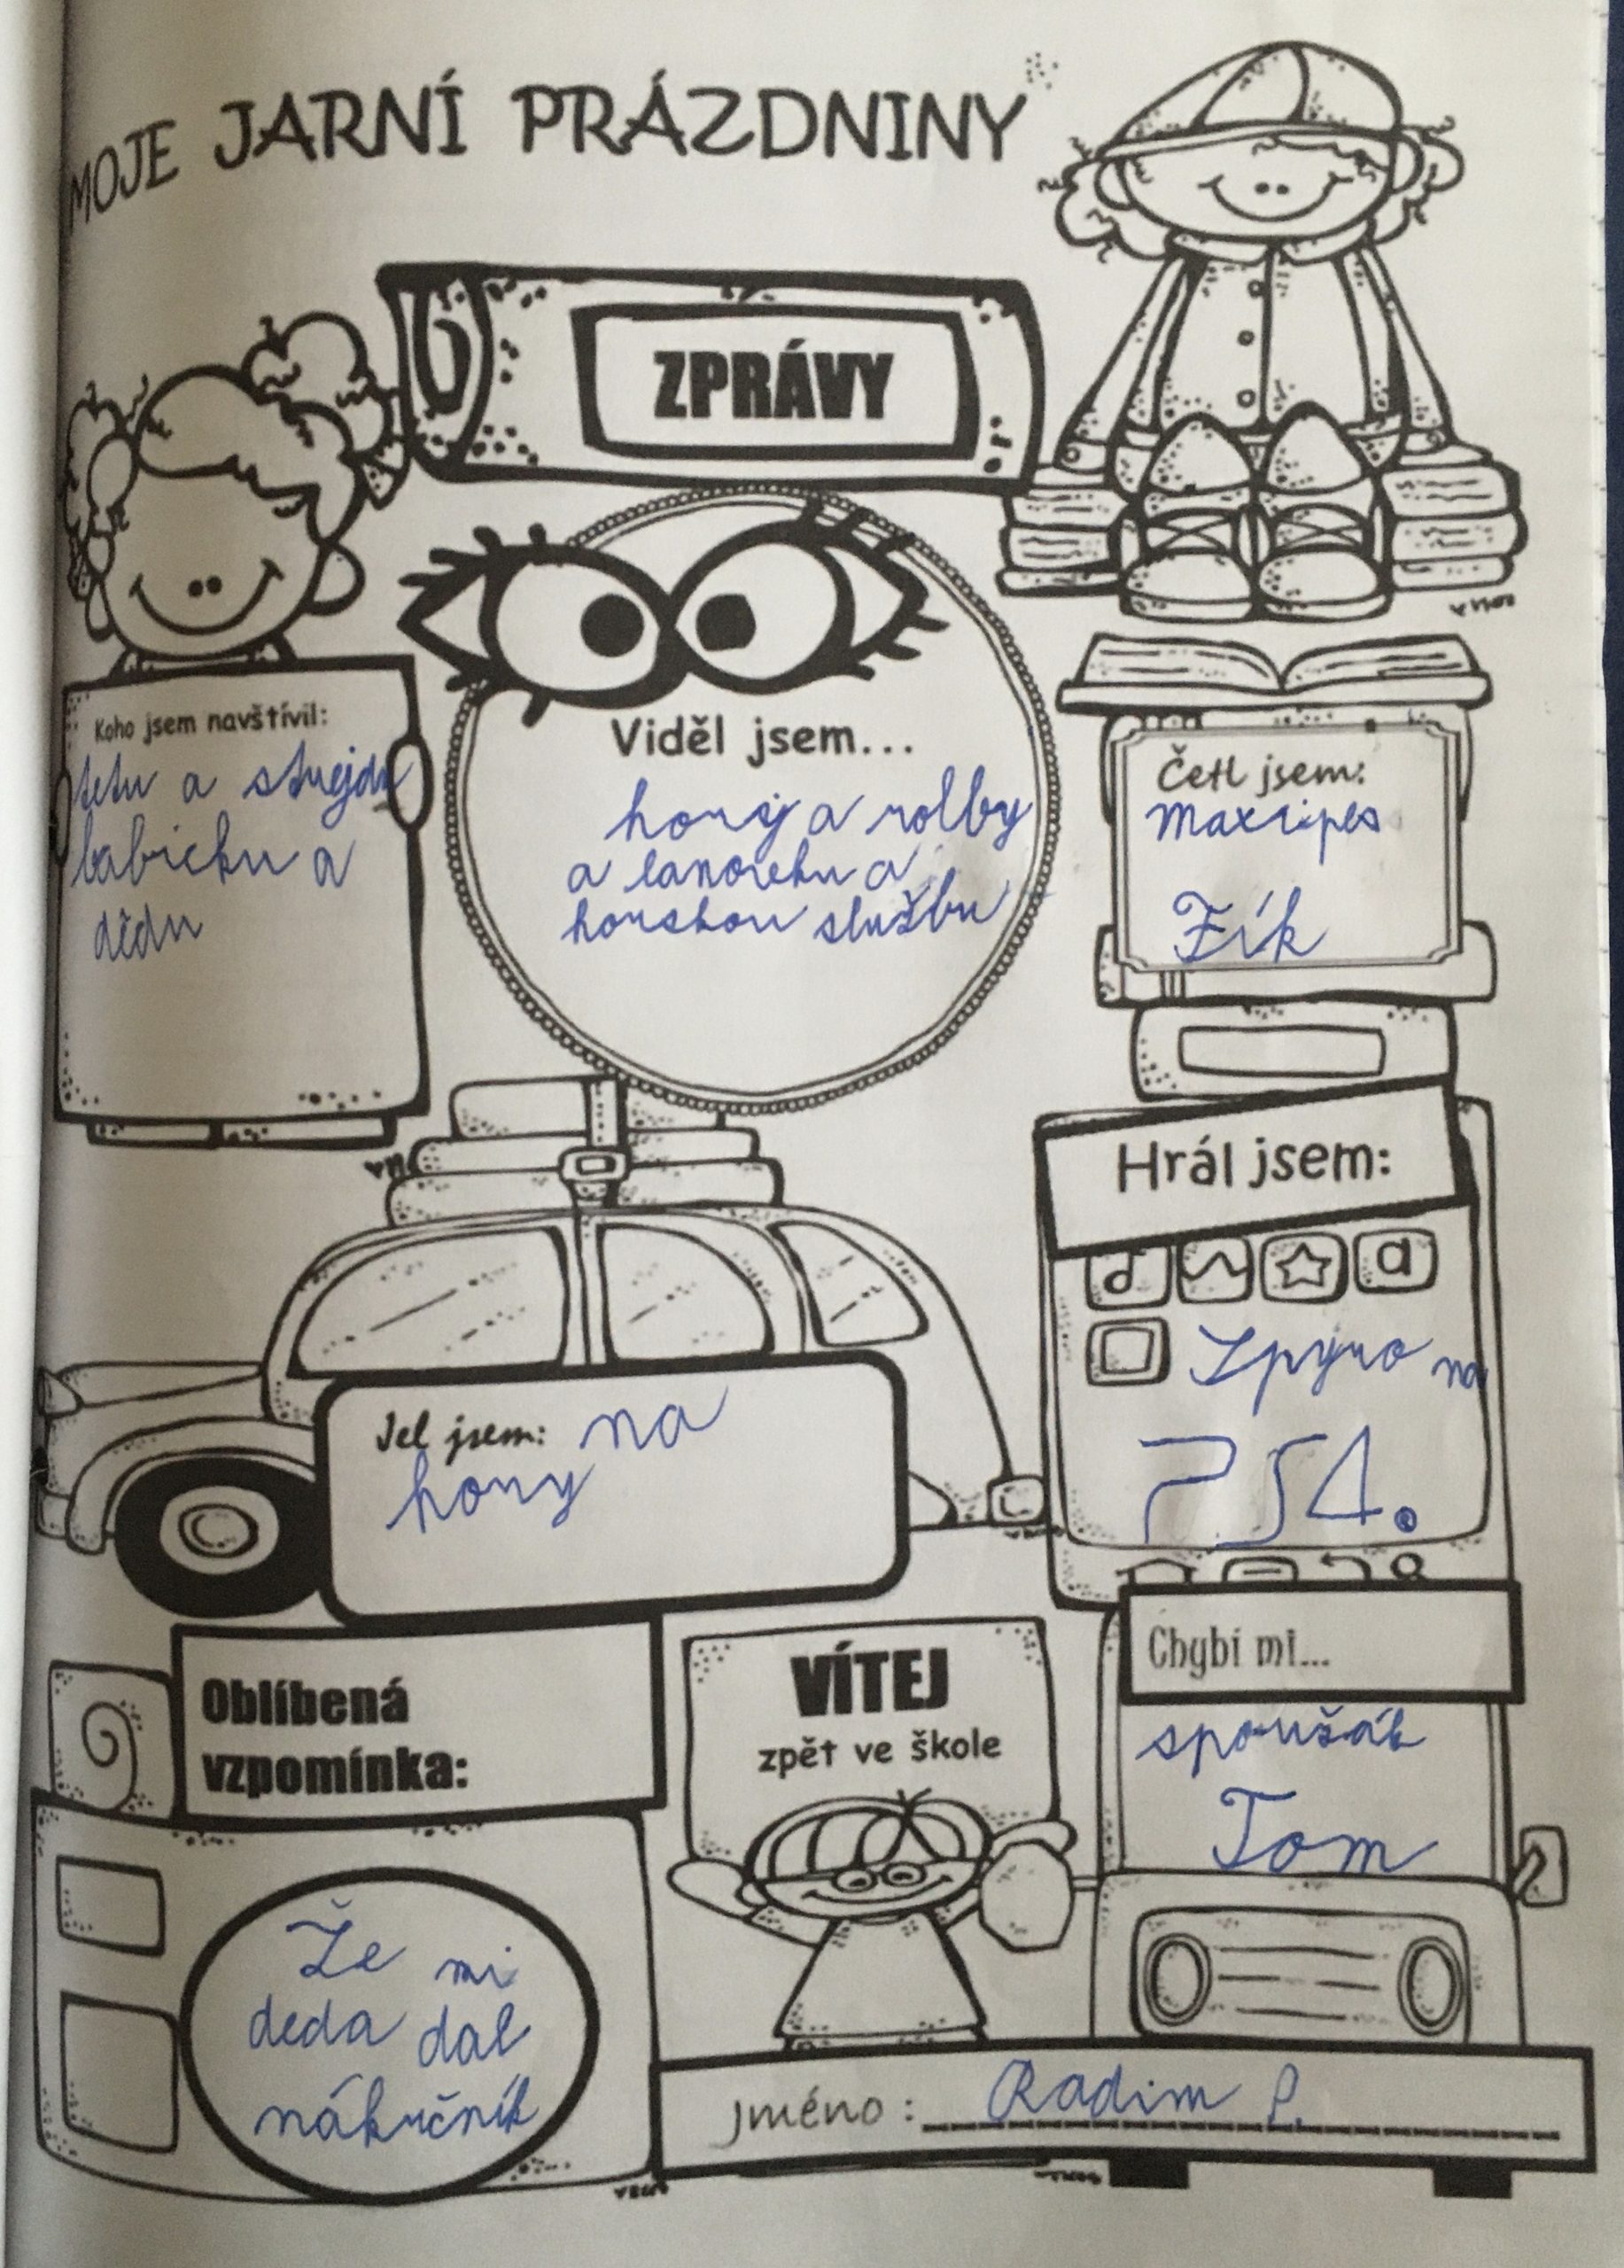 MOJE JARNÍ PRÁZDNINY
ZPRÁVY
Koho jsem navštívil:
tetu a strejdu
babičku a
dědu
Viděl jsem...
hory a rolby
a lanovku a
horskou službu
Četl jsem:
Maxipes
Fík
Hrál jsem:
a
Spyro na
PS4.
Jel jsem: na
hory
Oblíbená
vzpomínka:
Že mi
deda dal
nákrčník
VÍTEJ
zpět ve škole
Chybí mi...
spoužák
Tom
Jméno: Radim P.